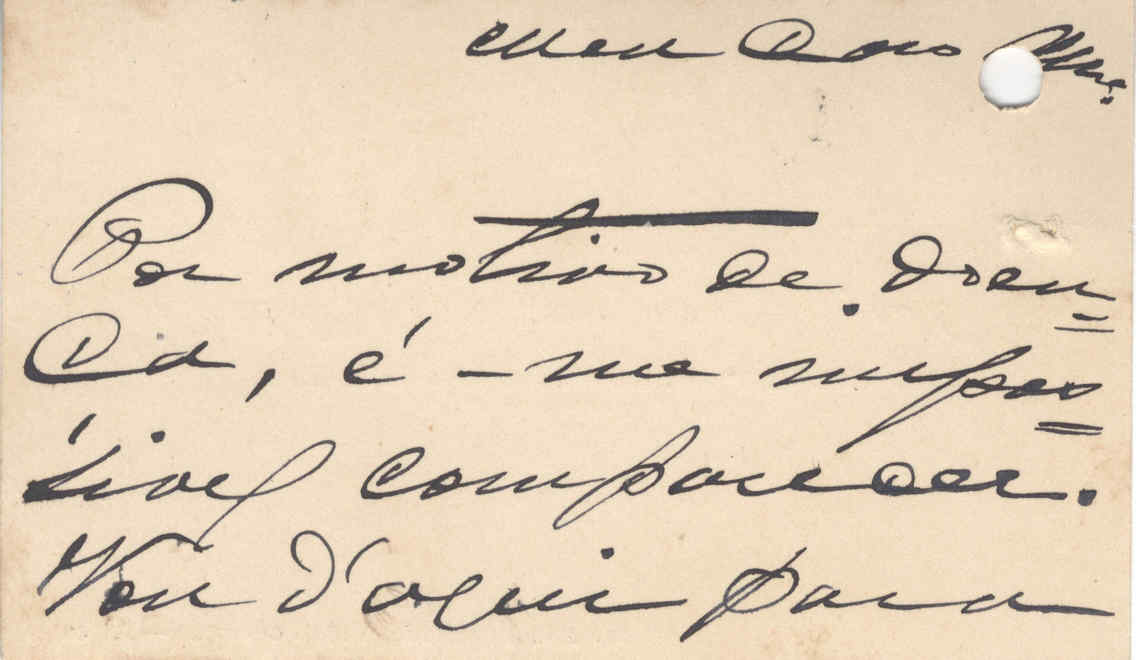 Meu Caro
Por motivo de doen=
ça, é-me impos=
sivel comparecer.
Vou d'aqui para